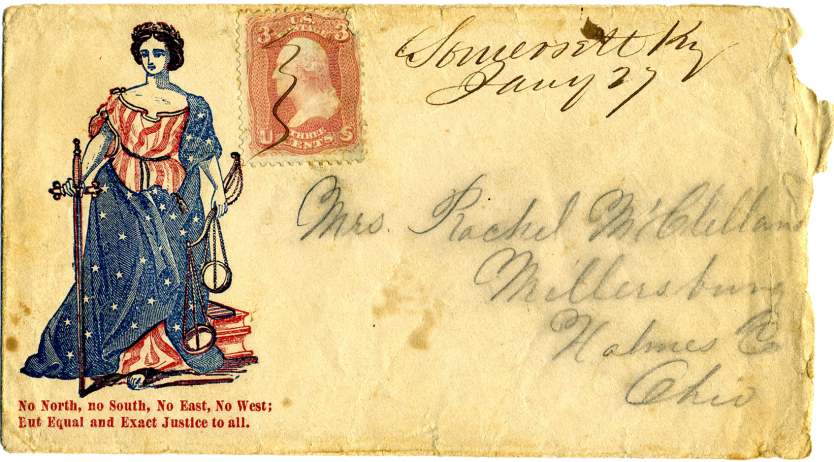 3 U.S. 3
POSTAGE
U THREE S
CENTS
Somersett Ky
Jany 27
Mrs. Rachel McClelland
Millersburg
Holmes Co
Ohio
No North, no South, No East, No West;
But Equal and Exact Justice to all.